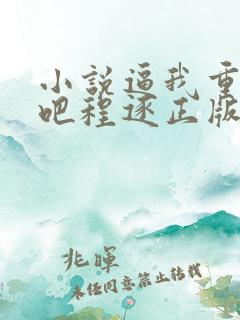 小说逼我重
吧程逐正版
兆暉
未经同意禁止转载